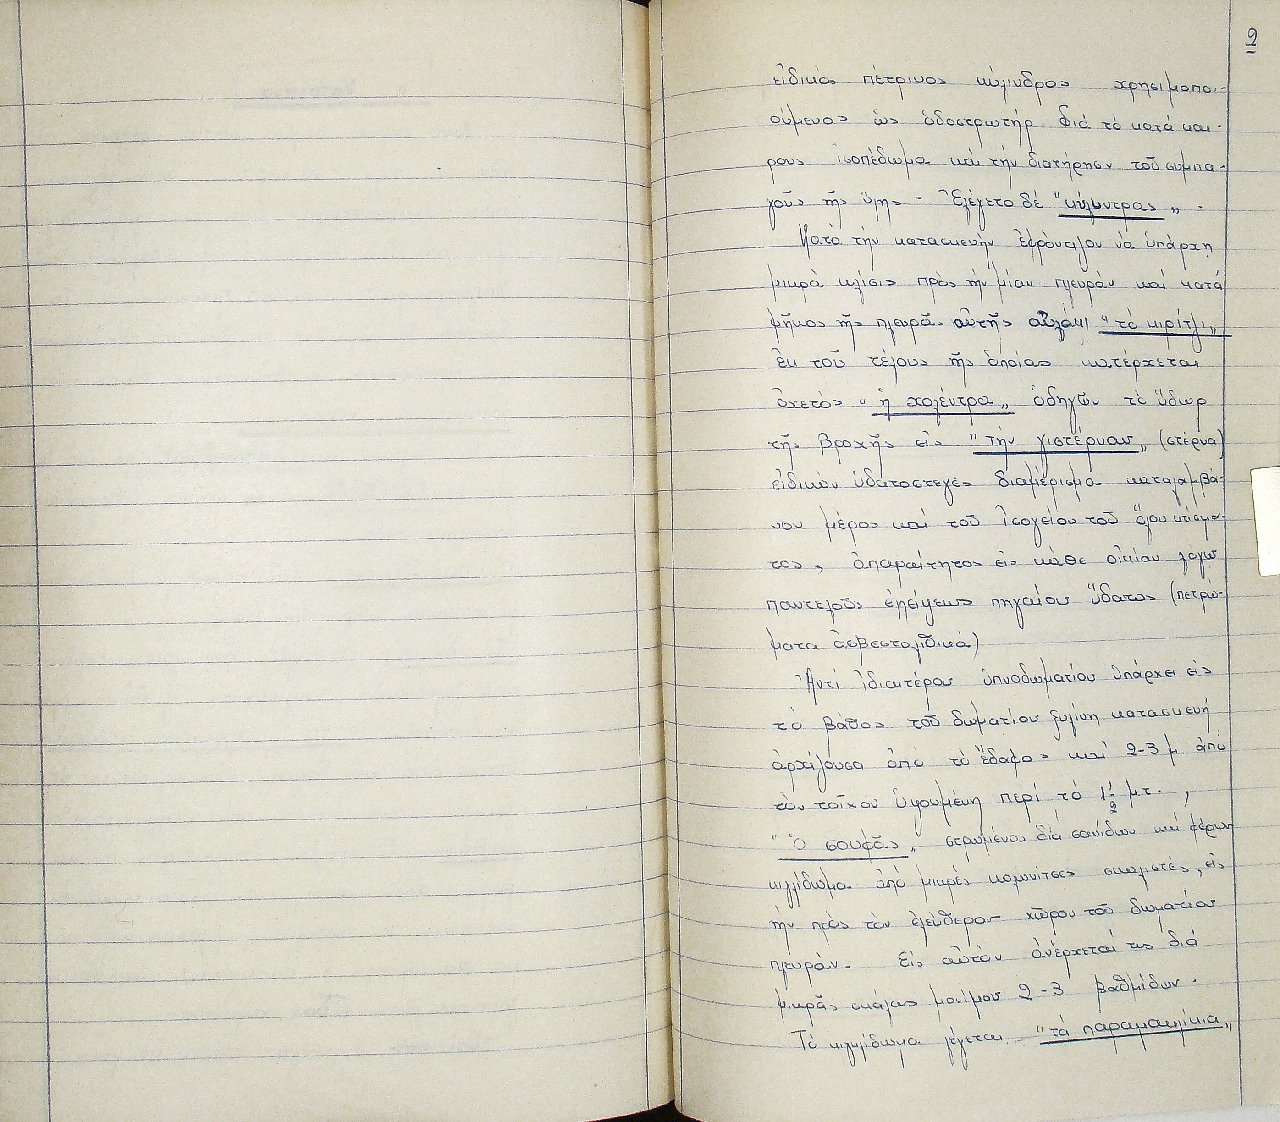 2
εἰδικὸς πέτρινος κύλινδρος χρησιμοποι-
ούμενος ὡς ὁδοστρωτήρ διά τὸ κατά και-
ρους ἰσοπέδωμα καὶ τὴν διατήρησιν τοῦ συμπα-
γοῦς τῆς ὕλης - Ἐλέγετο δέ "κύλιντρας„ -
Κατὰ τὴν κατασκευὴν ἐφρόντιζον νὰ ὑπάρχῃ
μικρὰ κλίσις πρὸς τὴν μίαν πλευρὰν καὶ κατά
μῆκος τῆς πλευρᾶς αὐτῆς αὐλάκι "τὸ κιρίτζι„
ἐκ τοῦ τέλους τῆς ὁποίας κατέρχεται
ὀχετὸς "ἡ χολέντρα„ ὁδηγῶν τὸ ὕδωρ
τῆς βροχῆς εἰς "τὴν γιστέρναν„ (στέρνα)
εἰδικὸν ὑδατοστεγές διαμέρισμα καταλαμβά-
νον μέρος καί τοῦ ἰσογείου τοῦ ὅλου κτίσμα-
τος, ἀπαραίτητος εἰς κάθε οἰκίαν λόγω
παντελοῦς ἐλείψεως πηγαίου ὕδατος (πετρώ-
ματα ἀσβεστολιθικά)
Ἀντί ἰδιαιτέρου ὑπνοδωματίου ὑπάρχει εἰς
τὸ βάθος τοῦ δωματίου ξυλίνη κατασκευή
ἀρχίζουσα ἀπὸ τὸ ἔδαφος καί 2-3 μ ἀπό
τὸν τοῖχον ὑψουμένη περί τὸ 1 1/2 μ.τ. ,
"ὁ σουφᾶς„ στρωμένος διά σανίδων καί φέρων
κιγκλίδωμα ἀπὸ μικρές κολωνίτσες σκαλιστές, εἰς
τὴν πρὸς τὸν ἐλεύθερον χῶρον τοῦ δωματίου
πλευράν. Εἰς αὐτὸν ἀνέρχεταί τις διά
μικρᾶς σκάλας μονίμου 2-3 βαθμίδων.
Τὸ κιγκλίδωμα λέγεται "τὰ παραμακλίκια„